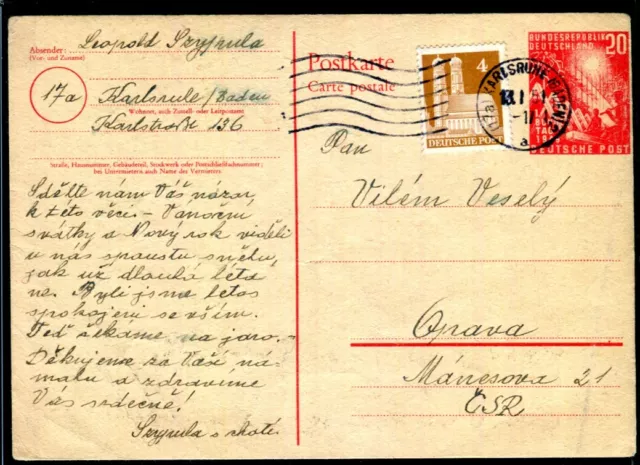 Absender:
(Vor- und Zuname)
Leopold Szypula
17a
Karlsruhe/Baden
Wohnort, auch Zustell- oder Leitpostamt
Karlstraße 136
Straße, Hausnummer, Gebäudeteil, Stockwerk oder Postschließfachnummer;
bei Untermietern auch Name des Vermieters
Sdělte nám Váš názor
k této věci. - Vánoční
svátky a Nový rok viděli
u nás spoustu sněhu,
jak už dlouhá léta
ne. Byli jsme letos
spokojeni se vším.
Teď čekáme na jaro. -
Děkujeme za Vaši ná-
mahu a zdravíme
Vás srdečně!
Szypula s chotí.
Postkarte
Carte postale
4
DEUTSCHE POST
KARLSRUHE (BADEN)
BUNDESREPUBLIK
DEUTSCHLAND
20
DEUTSCHE POST
Pan
Vilém Veselý
Opava
Mánesova 21
ČSR